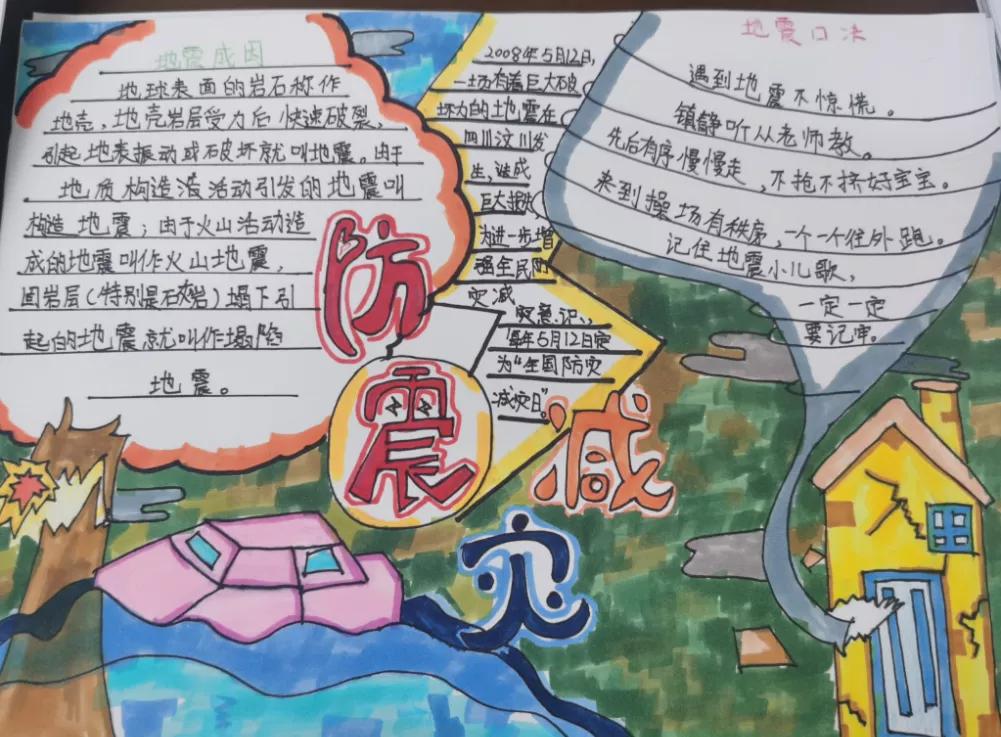 地震成因
地球表面的岩石称作
地壳,地壳岩层受力后快速破裂,
引起地表振动或破坏就叫地震。由于
地质构造活活动引发的地震叫
构造地震;由于火山活动造
成的地震叫作火山地震,
固岩层(特别是石灰岩)塌下引
起的地震就叫作塌陷
地震。
2008年5月12日,
一场有着巨大破
坏力的地震在
四川汶川发
生,造成
巨大损失
为进一步增
强全民防
灾减
灾意识,
每年5月12日定
为"全国防灾
减灾日"
地震口决
遇到地震不惊慌。
镇静听从老师教。
先后有序慢慢走,不抢不挤好宝宝。
来到操场有秩序,一个一个往外跑。
记住地震小儿歌,
一定一定
要记牢。
防
震
减
灾